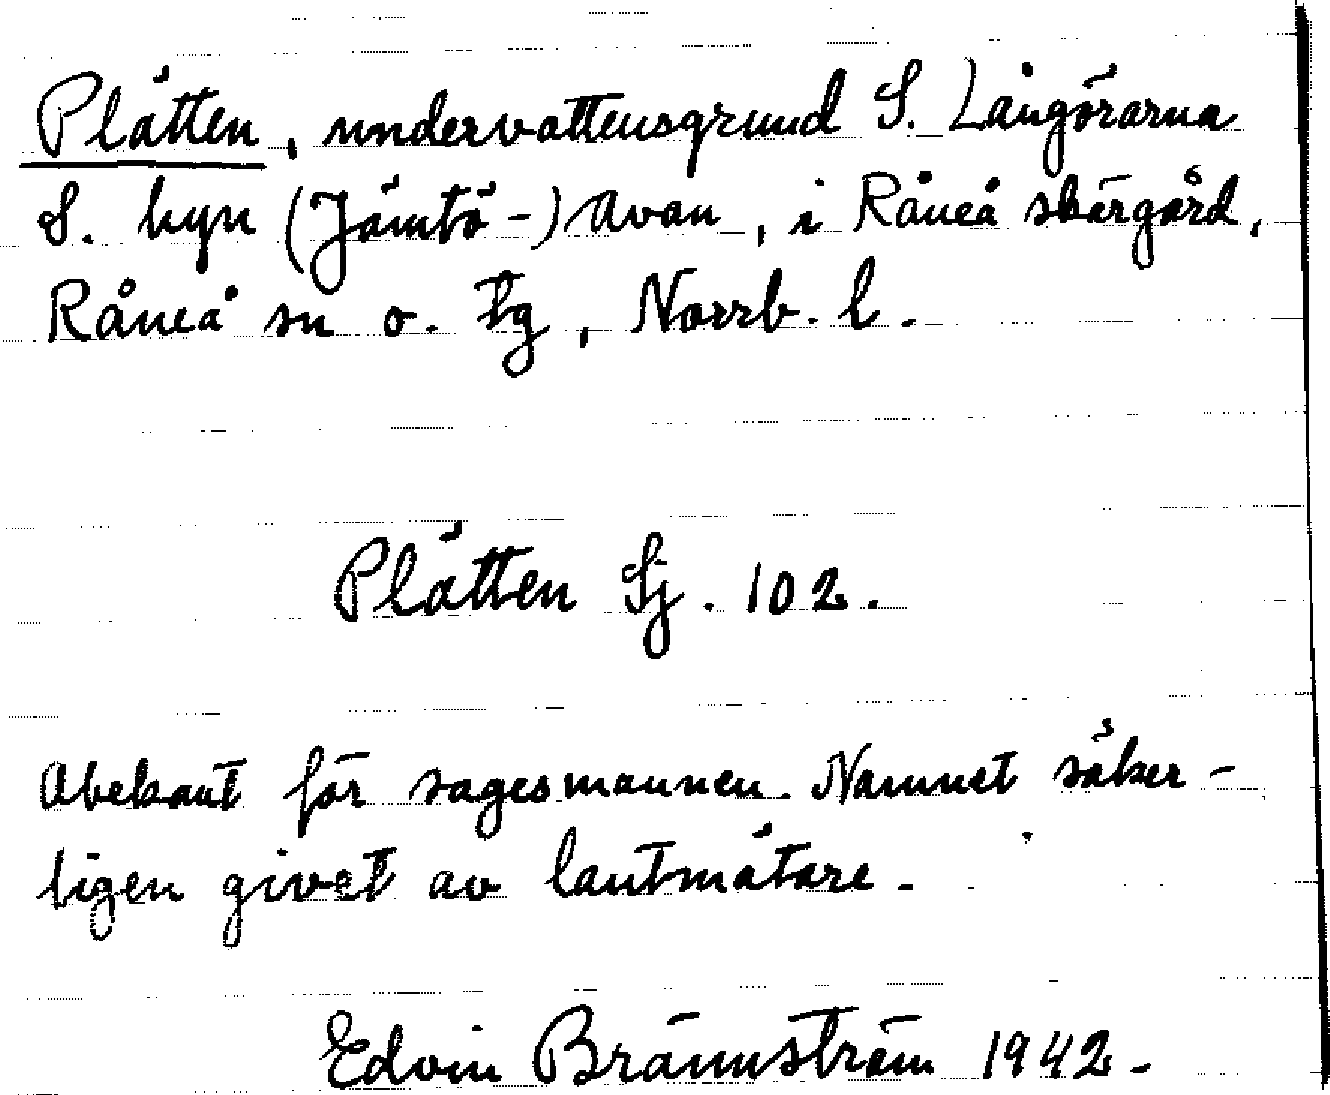 Plätten, undervattensgrund S. Långörarna
S. byn (Jämtö-) Avan, i Råneå skärgård,
Råneå sn o. tg, Norrb. l.
Plätten Sj. 102.
Obekant för sagesmannen. Namnet säker-
ligen givet av lantmätare.
Edvin Brännström 1942.